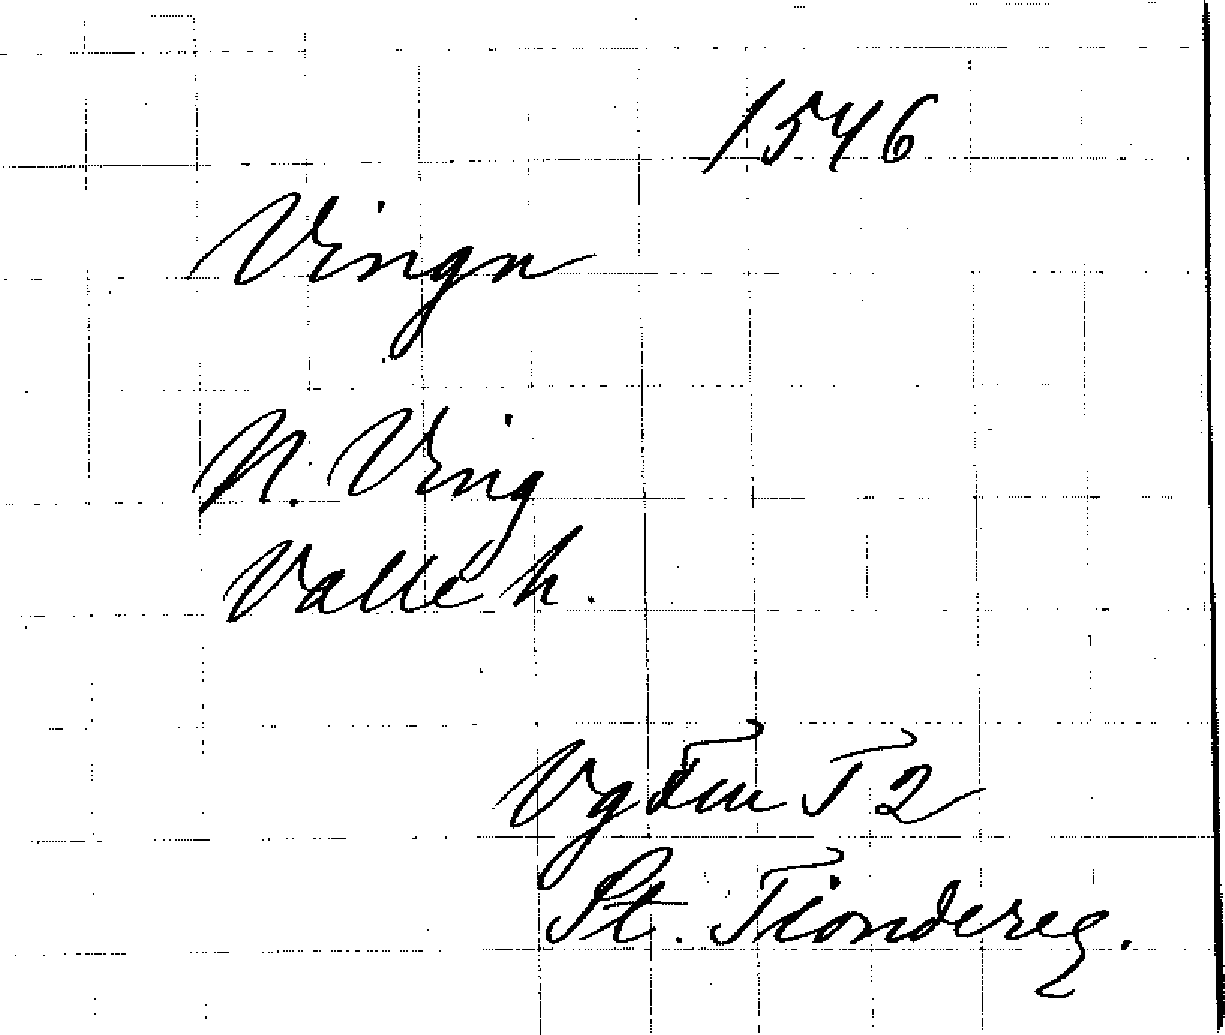 1546
Vinga
N. Ving
Valle h.
Vg Tiu T 2
St. Tiondereg.